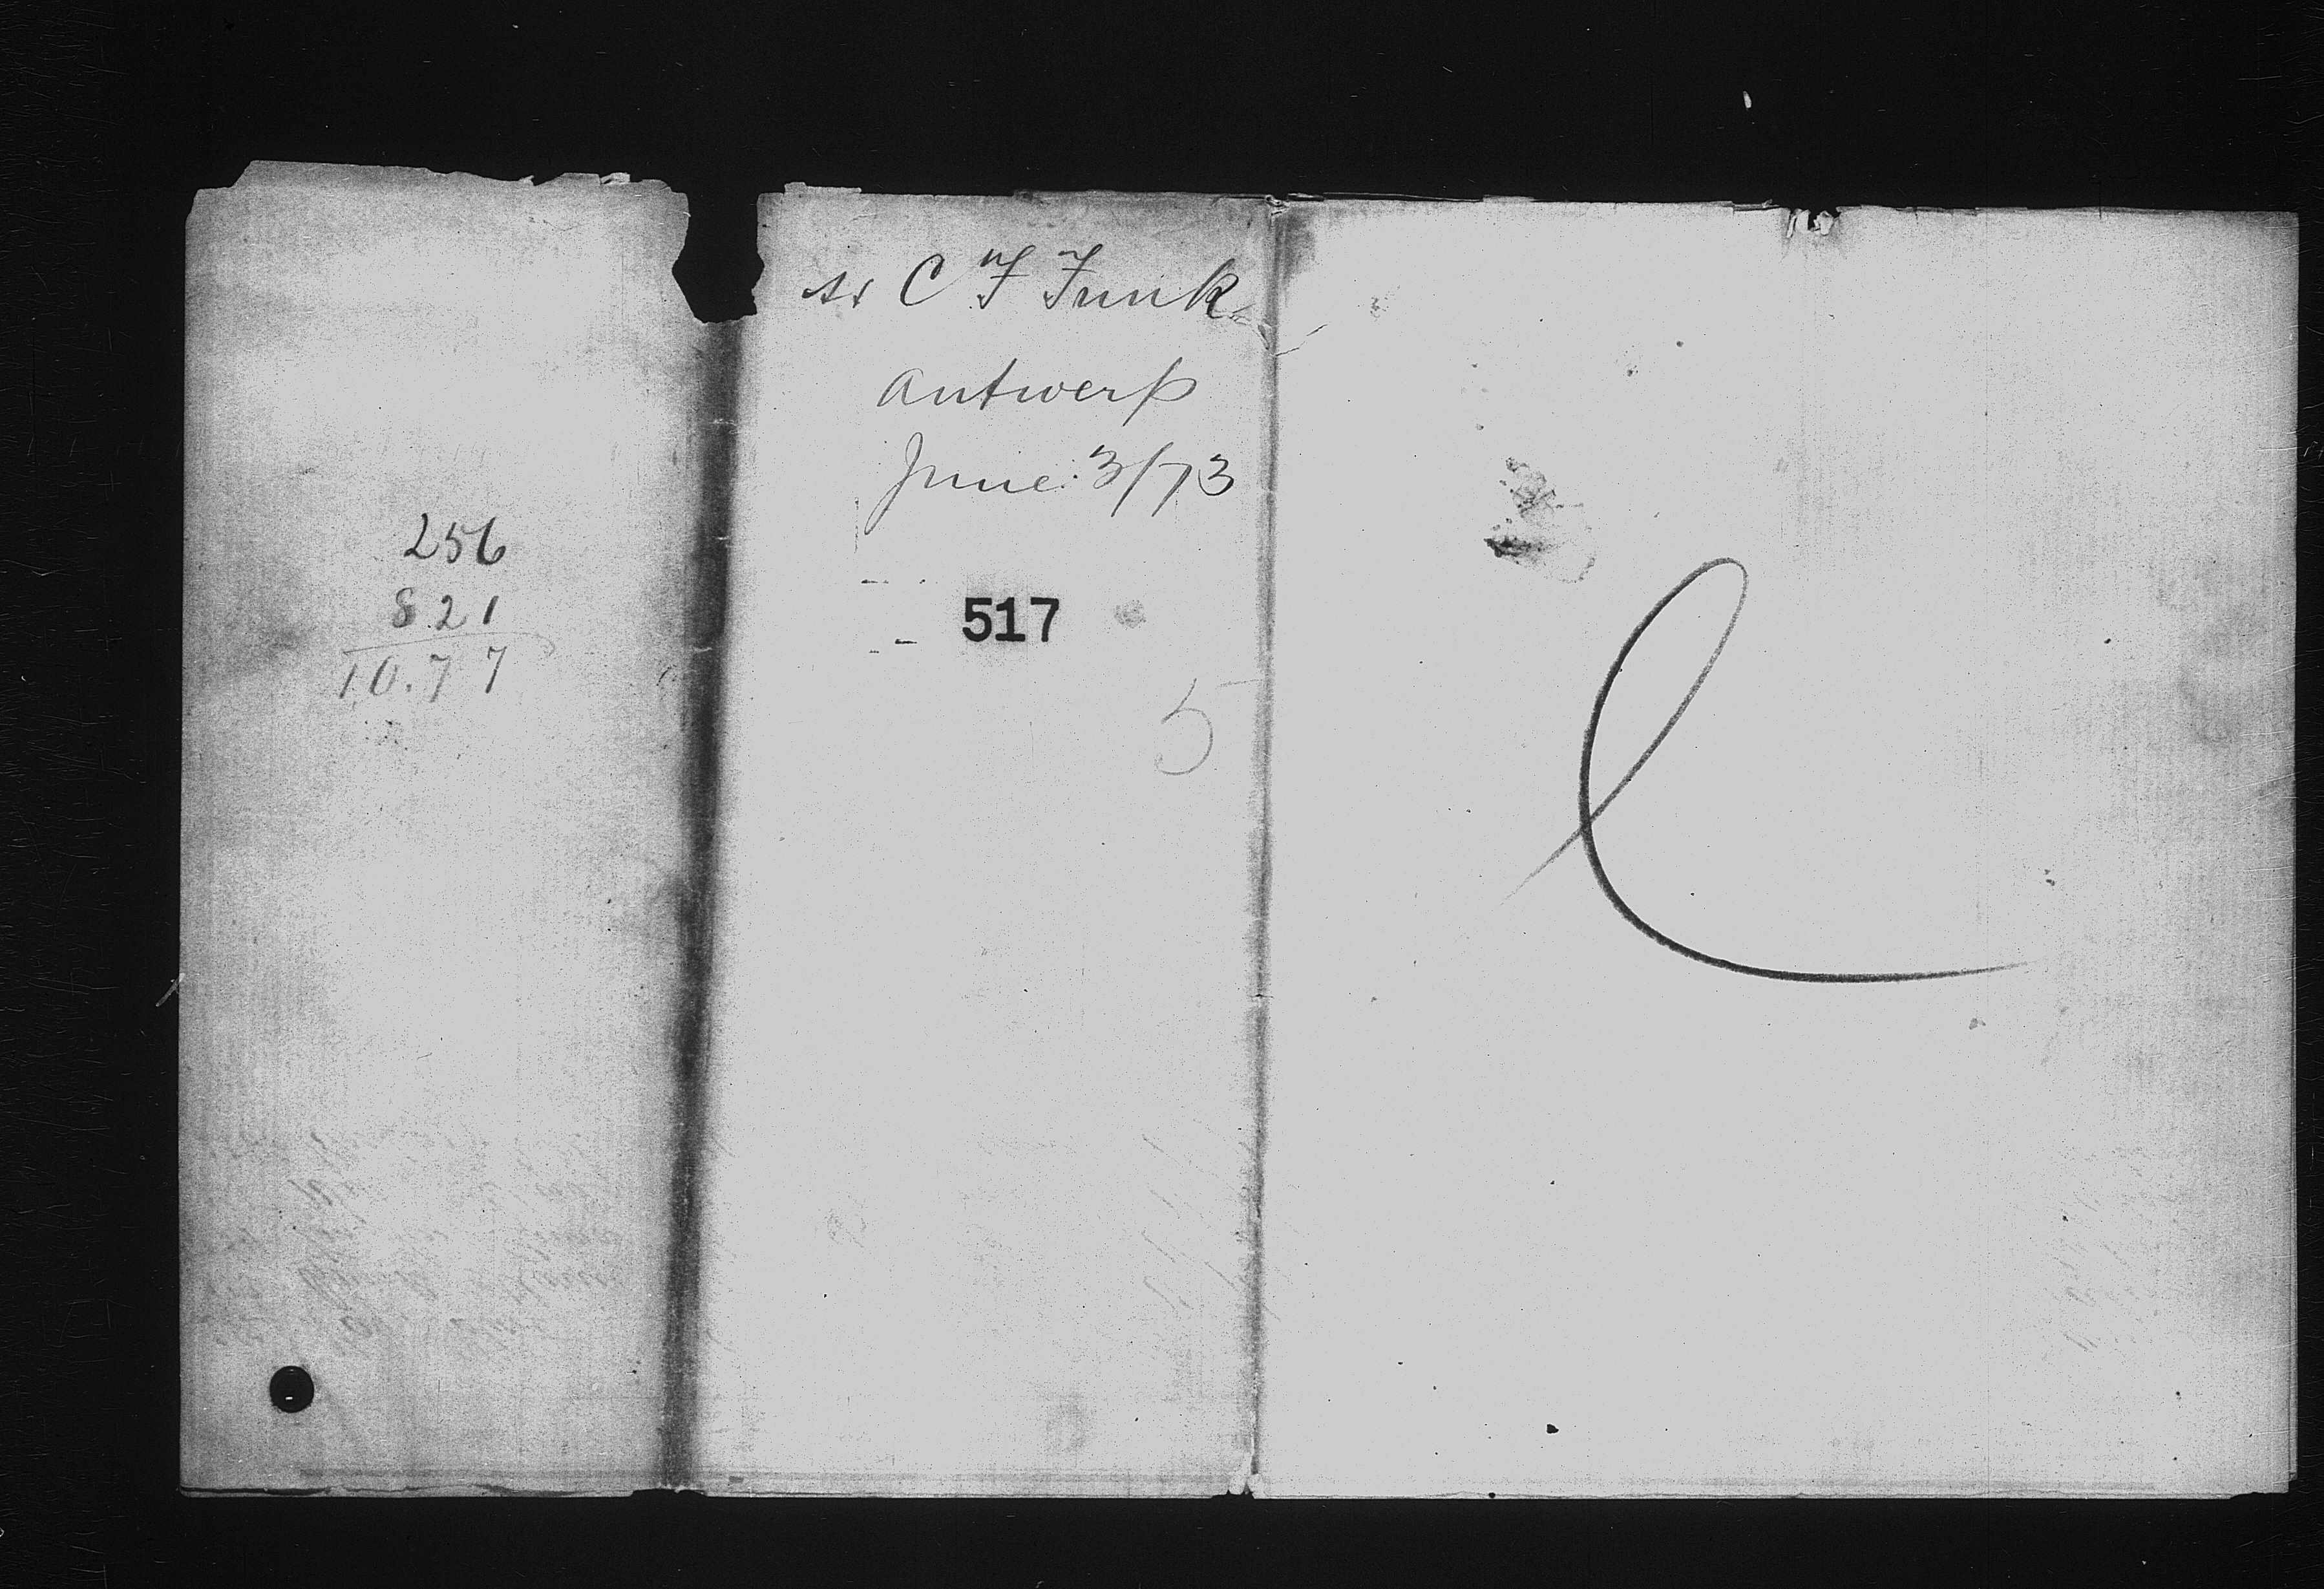 256
8.21
10.77
ss C F Funk
Antwerp
June 3/73
517
5